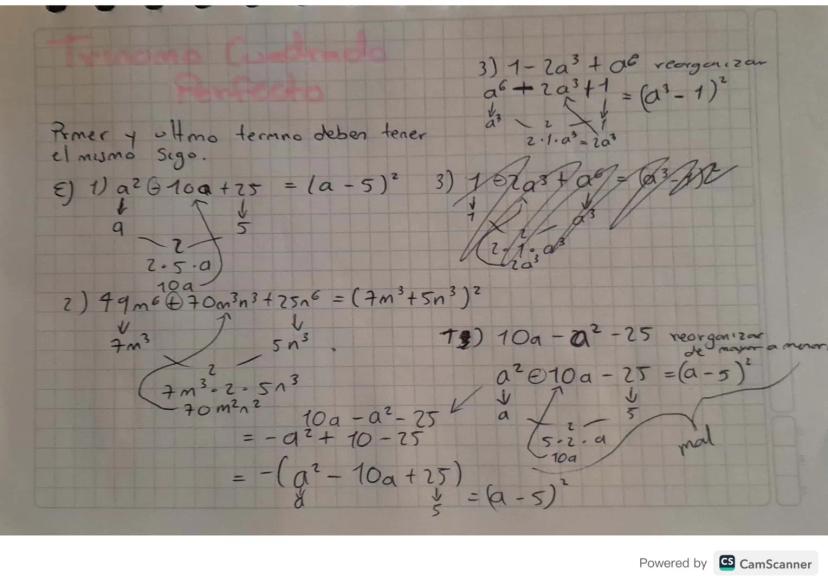 Trinomio Cuadrado
Perfecto
Primer y ultmo termno deben tener
el mismo sigo.
E) 1) a² ⊖ 10a + 25 = (a - 5)²
a 5
2
2 · 5 · a
10a
2) 49m⁶ ⊕ 70m³n³ + 25n⁶ = (7m³ + 5n³)²
7m³ 5n³
2
7m³ · 2 · 5n³
70m²n²
3) 1 - 2a³ + a⁶ reorganizar
a⁶ + 2a³ + 1 = (a³ - 1)²
a³ 1
2
2 · 1 · a³ = 2a³
3) 1 ⊖ 2a³ + a⁶ =
1 a³
2
2 · 1 · a³
2a³
10a - a² - 25 reorganizar
de mayor a menor
a² ⊖ 10a - 25 = (a - 5)²
a 5
2
5 · 2 · a
10a
mal
10a - a² - 25
= - a² + 10 - 25
= -(a² - 10a + 25)
a 5
= (a - 5)²
Powered by CS CamScanner